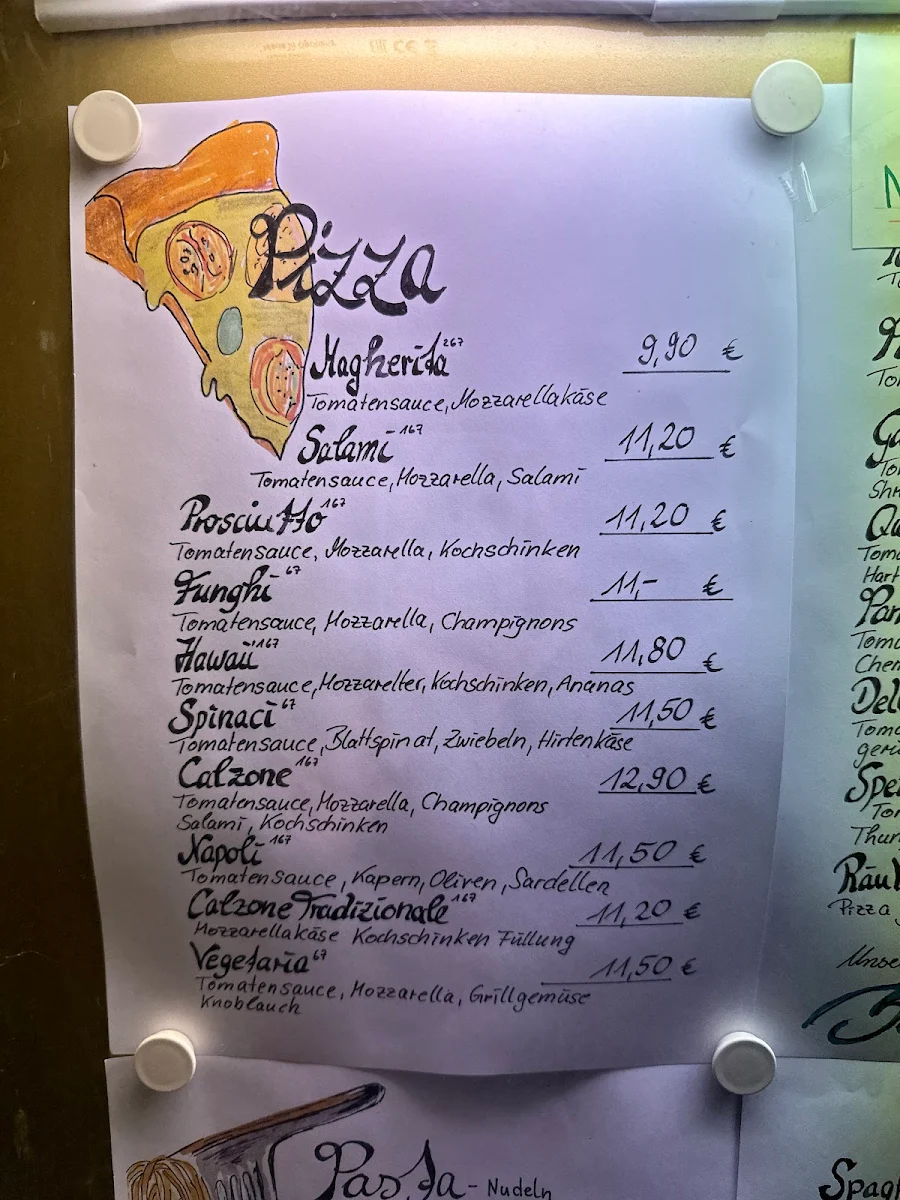 Pizza
Magherita 267 9,90 €
Tomatensauce, Mozzarellakäse
Salami 167 11,20 €
Tomatensauce, Mozzarella, Salami
Prosciutto 167 11,20 €
Tomatensauce, Mozzarella, Kochschinken
Funghi 67 11,- €
Tomatensauce, Mozzarella, Champignons
Hawaii 167 11,80 €
Tomatensauce, Mozzareller, Kochschinken, Ananas
Spinaci 67 11,50 €
Tomatensauce, Blattspinat, Zwiebeln, Hirtenkäse
Calzone 167 12,90 €
Tomatensauce, Mozzarella, Champignons
Salami, Kochschinken
Napoli 167 11,50 €
Tomatensauce, Kapern, Oliven, Sardellen
Calzone Tradizionale 167 11,20 €
Mozzarellakäse Kochschinken Füllung
Vegetaria 67 11,50 €
Tomatensauce, Mozzarella, Grillgemüse
Knoblauch
Pasta - Nudeln
Pizza